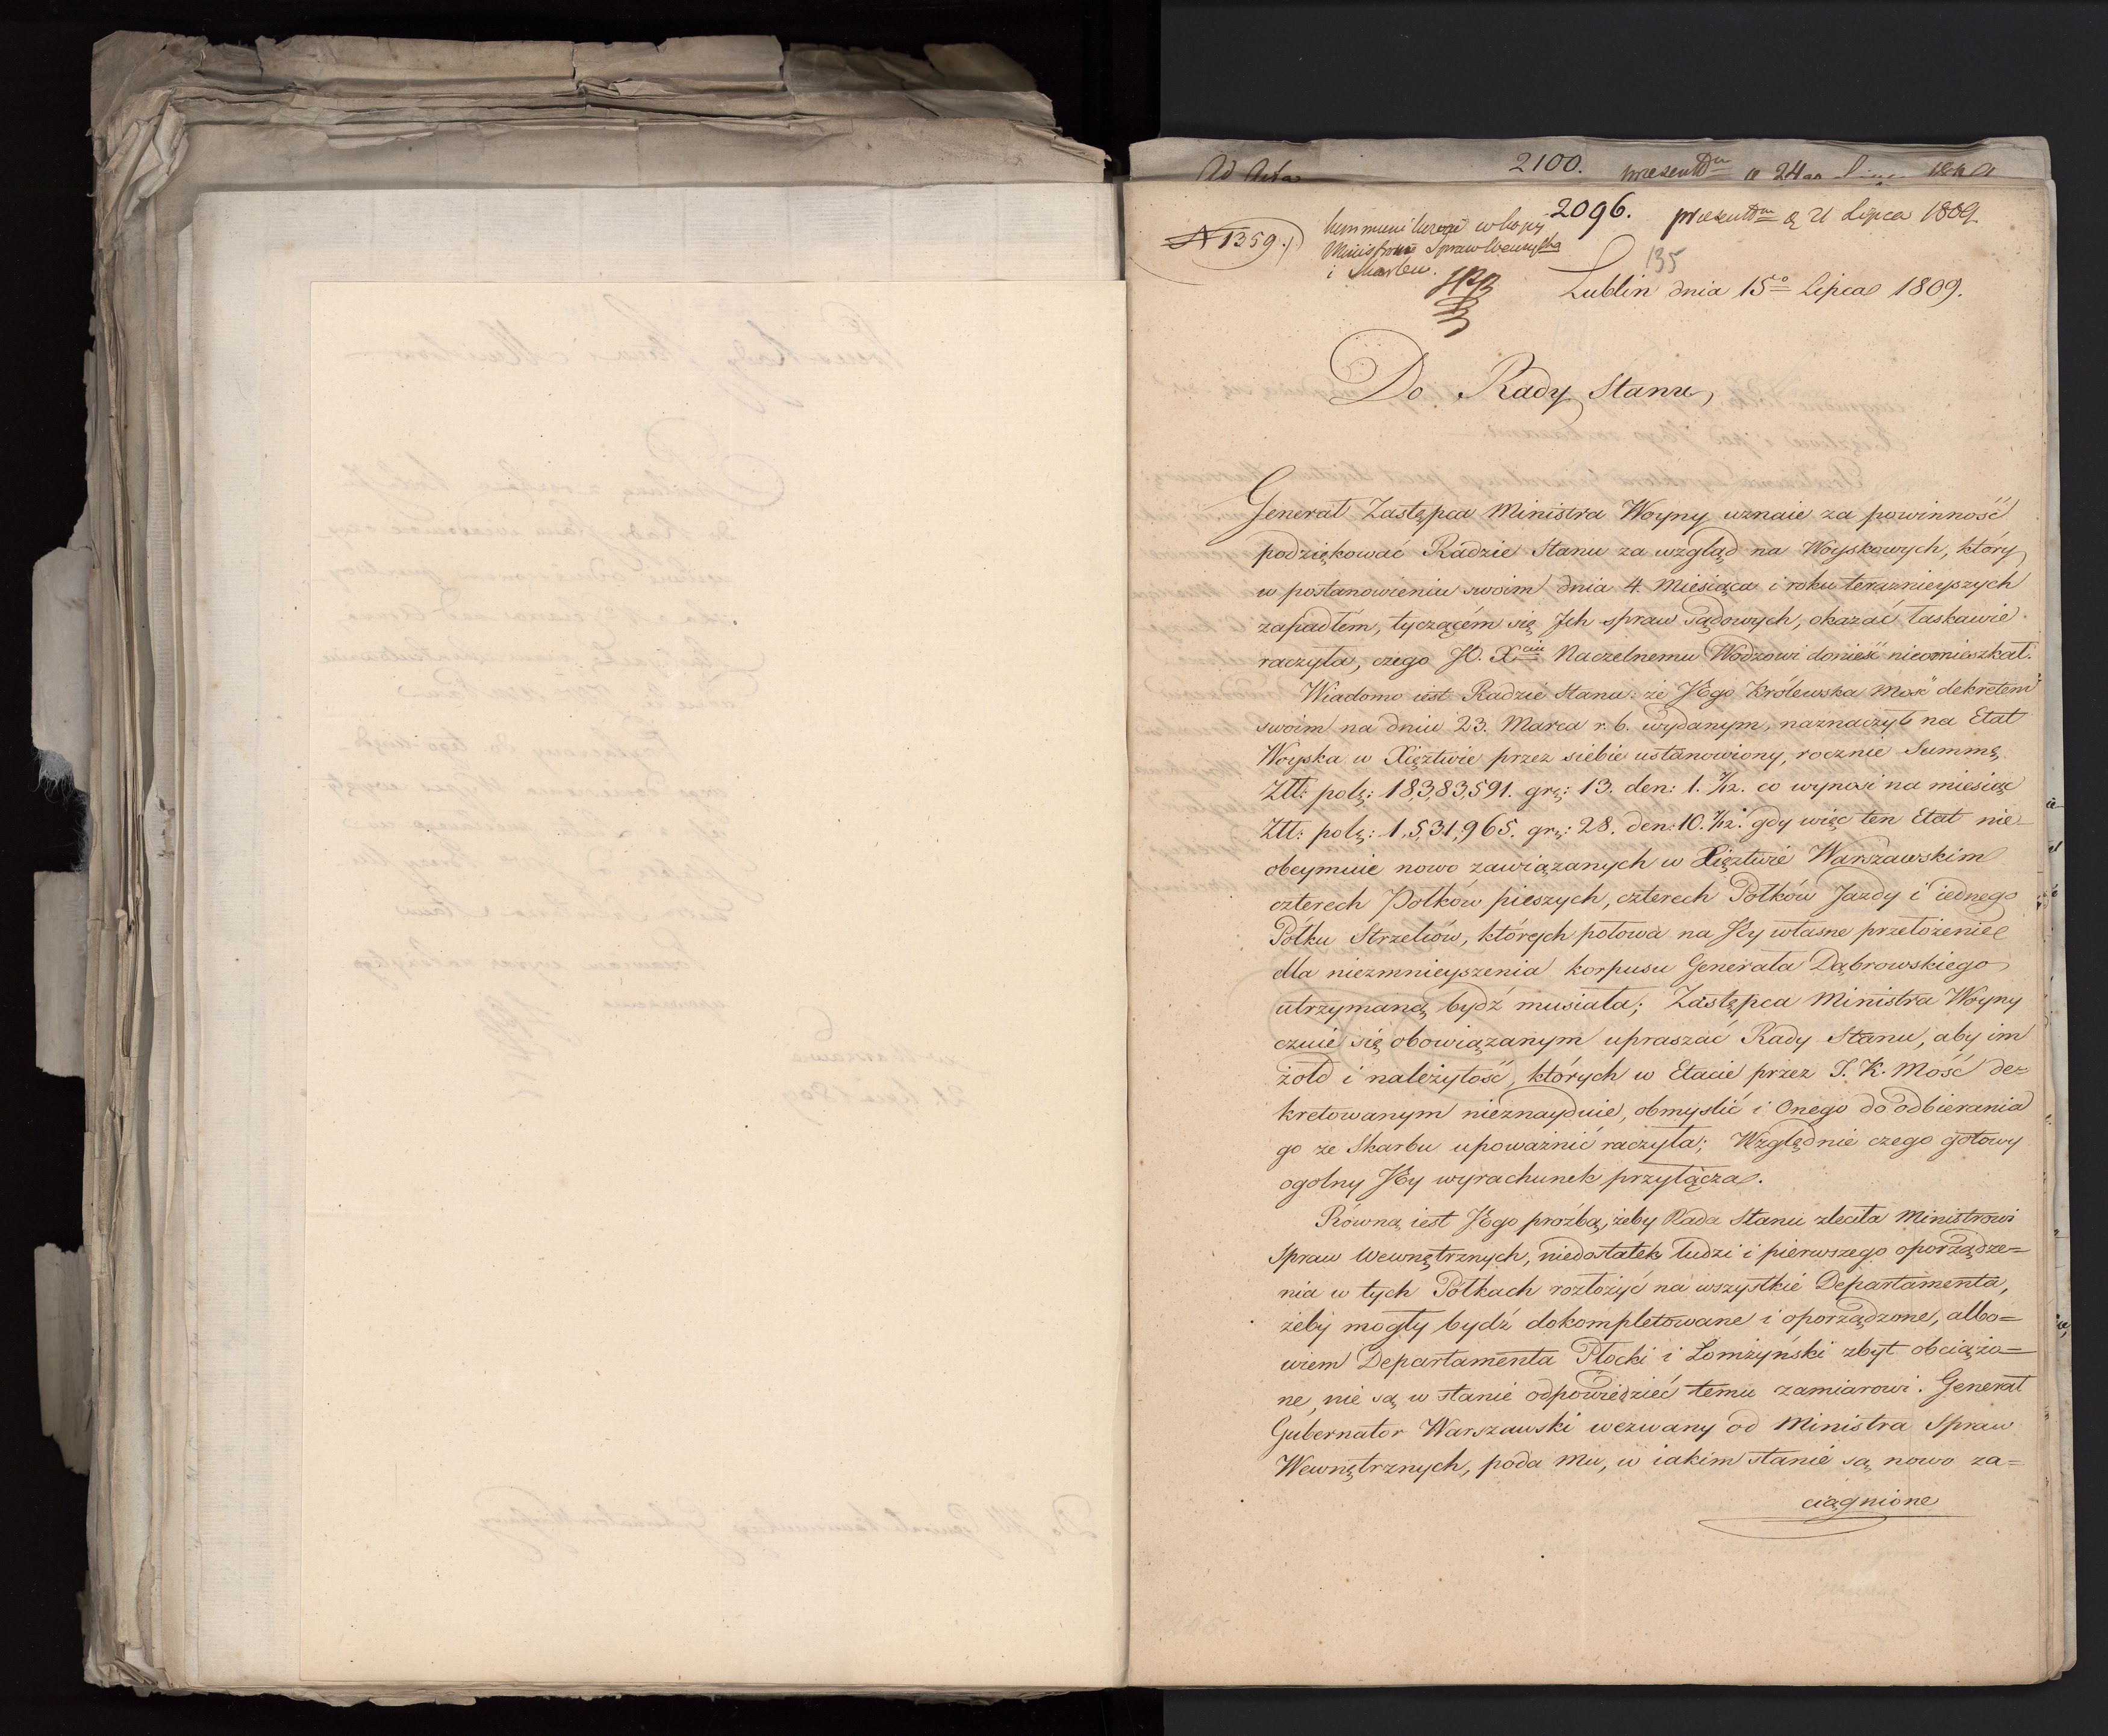 Ad Acta
2100.
2096. presentt<sup>m</sup> d. 21 Lipca 1809.
N 1359.
w kopij
Ministrom Spraw Wewnętrz
i Skarbu.
135
Lublin dnia 15<sup>o</sup> Lipca 1809.
Do Rady Stanu,
Generał Zastępca Ministra Woyny uznaie za powinność
podziękować Radzie Stanu za wzgląd na Woyskowych, który
w postanowieniu swoim dnia 4. Miesiąca i roku teraznieyszych
zapadłém, tyczącém się Jch spraw sądowych, okazać łaskawie
raczyła, czego JO. X<sup>ciu</sup> Naczelnemu Wodzowi donieść nieomieszkał.
Wiadomo iest Radzie Stanu: że JEgo Królewska Mość dekretem
swoim na dniu 23. Marca r. b. wydanym, naznaczył na Etat
Woyska w Xięztwie przez siebie ustanowiony, rocznie Summę
Ztt: polz: 18,383,591. grz: 13. den: 1. co wynosi na miesiąc
Ztt: polz: 1,531,965. grz: 28. den: 10. 7/12. gdy więc ten Etat nie
obeymuie nowo zawiązanych w Xięztwie Warszawskim
czterech Połków pieszych, czterech Połków Jazdy i iednego
Półku Strzelców, których połowa na JEy własne przełożenie
dla niezmnieyszenia korpusu Generała Dąbrowskiego
utrzymaną bydź musiała; Zastępca Ministra Woyny
czuie się obowiązanym upraszać Rady Stanu, aby im
żołd i należytość, których w Etacie przez J. K. Mość de=
kretowanym nieznayduie, obmyslić i Onego do odbierania
go ze Skarbu upoważnić raczyła; Względnie czego gotowy
ogolny JEy wyrachunek przyłącza.
Równą iest JEgo prożbą, żeby Rada Stanu zleciła Ministrowi
Spraw Wewnętrznych, niedostatek ludzi i pierwszego oporządze=
nia w tych Półkach rozłożyć na wszystkie Departamenta,
żeby mogły bydź dokompletowane i oporządzone, albo=
wiem Departamenta Płocki i Łomżyński zbyt obciążo=
ne, nie są w stanie odpowiedzieć temu zamiarowi. Generał
Gubernator Warszawski wezwany od Ministra Spraw
Wewnętrznych, poda Mu, w iakim stanie są nowo za=
ciągnione